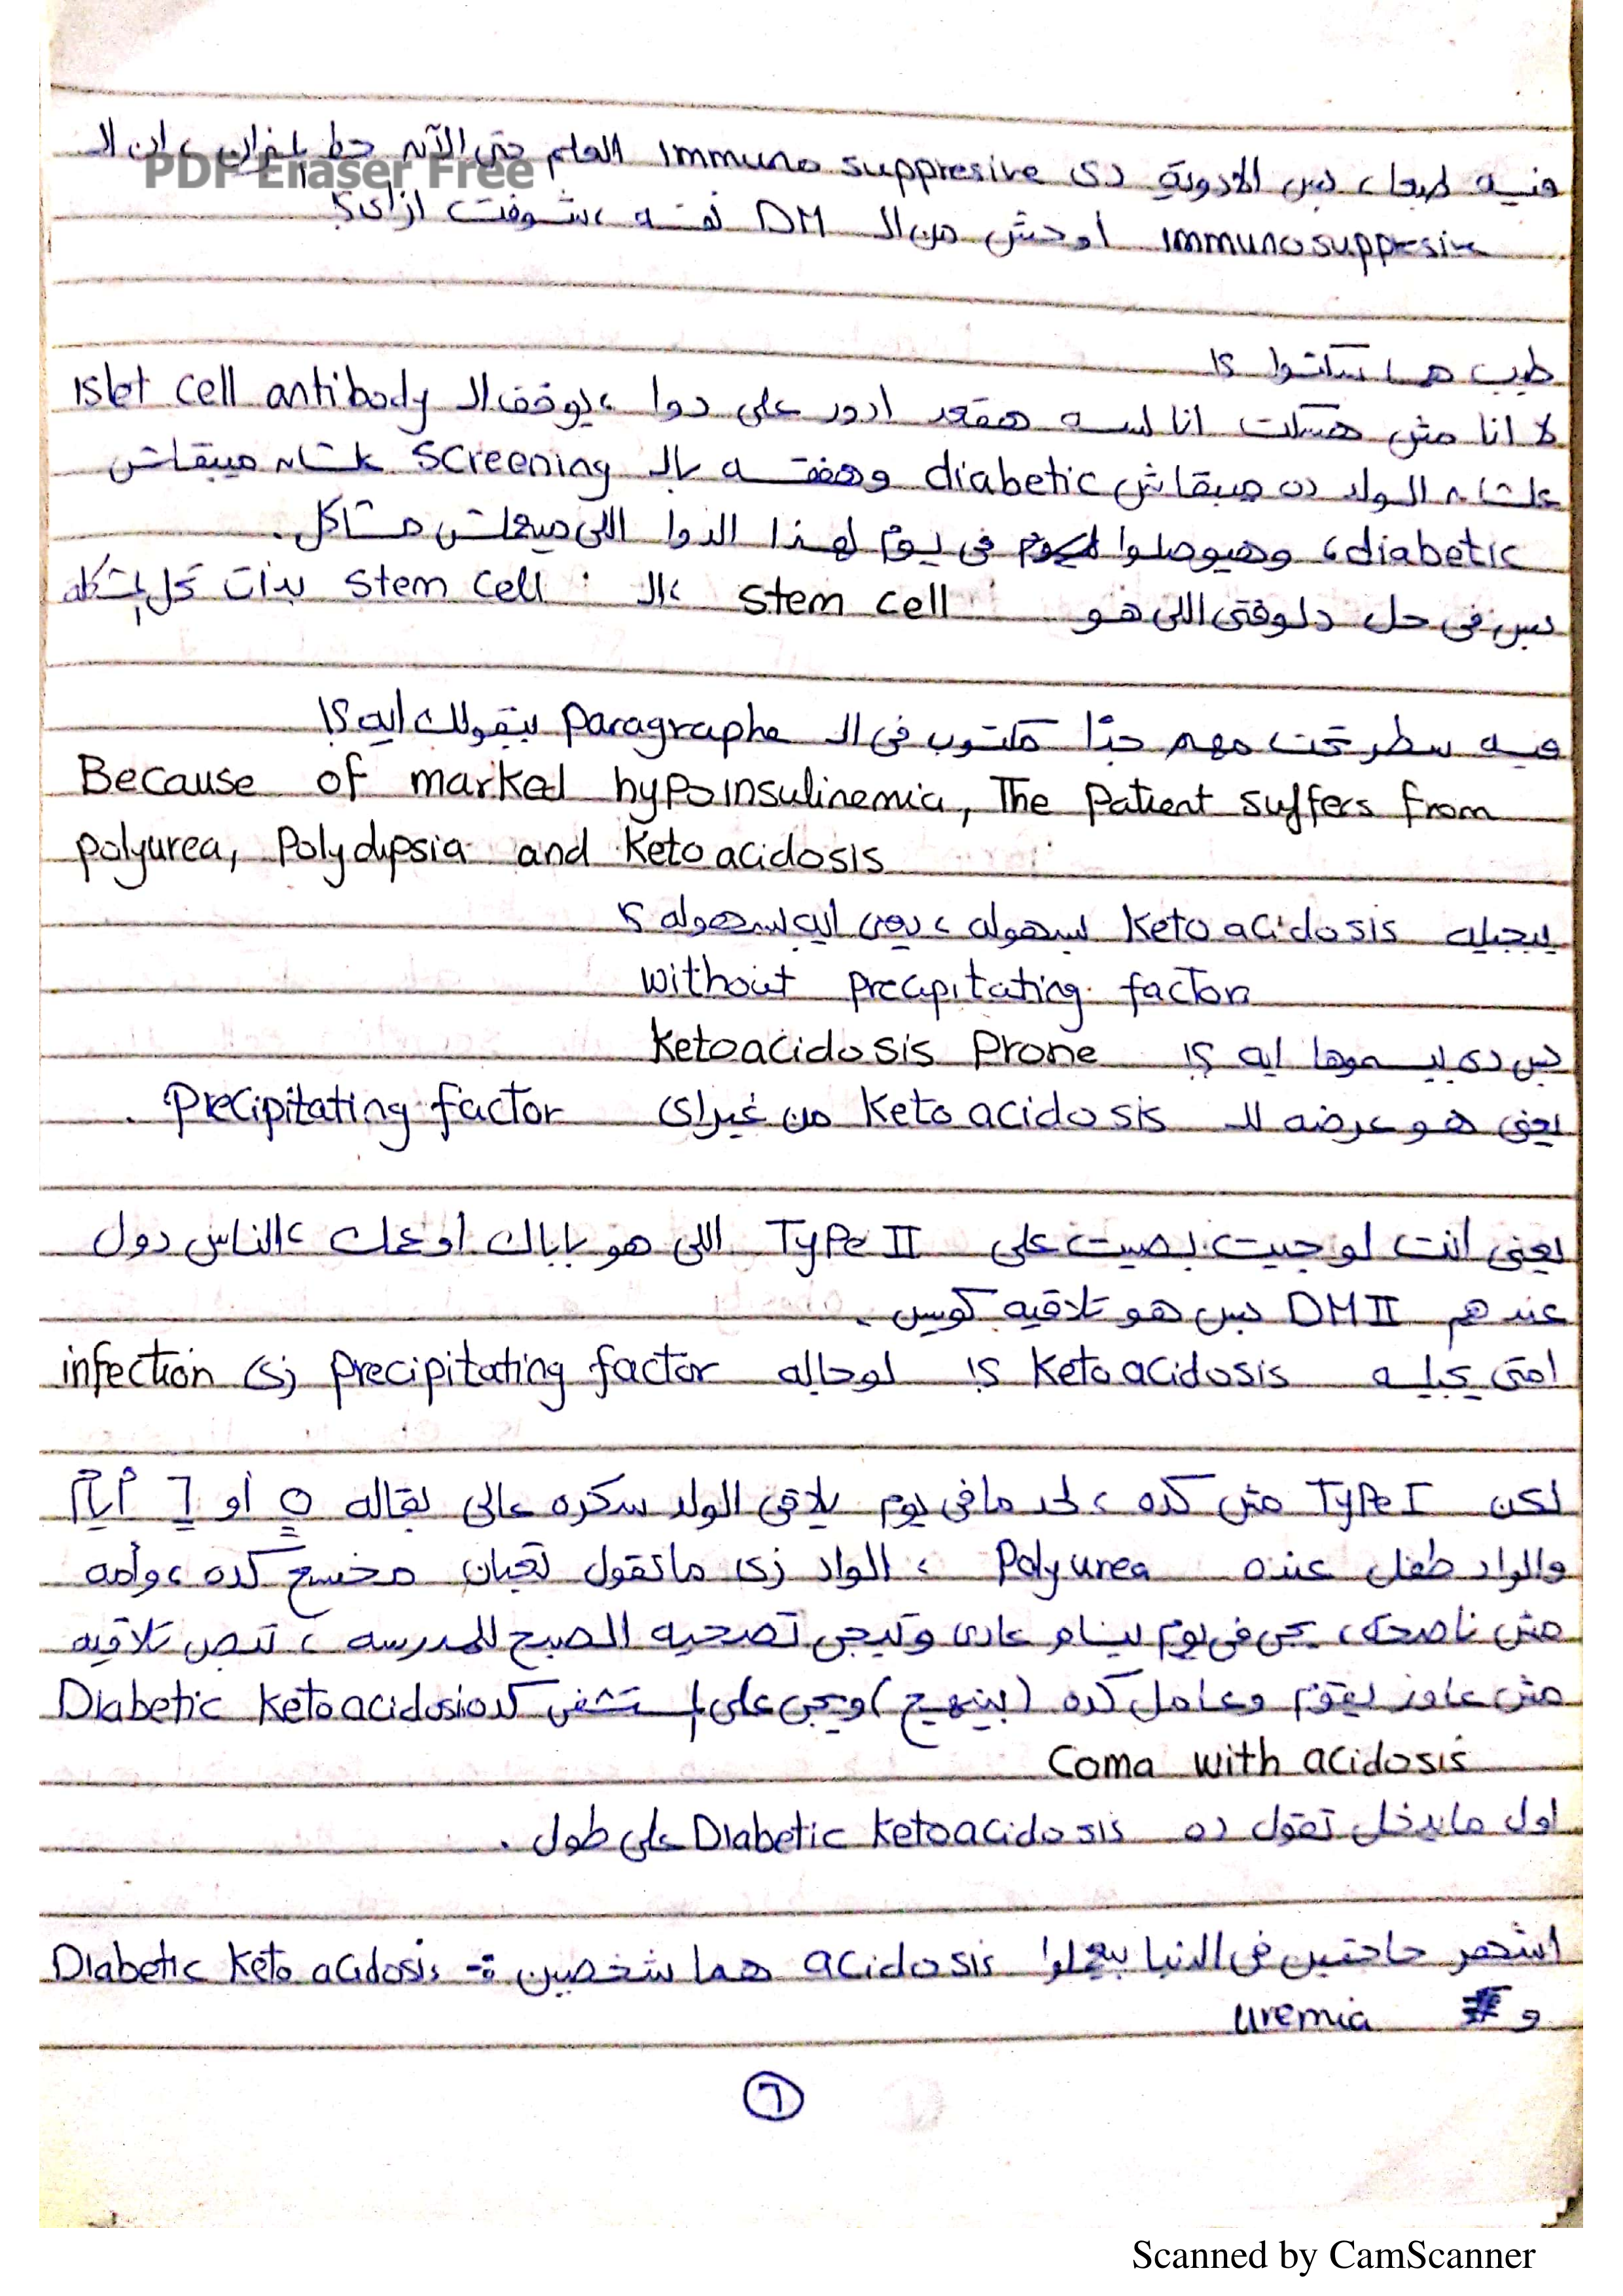 فيه طبعا، بس الادوية دى immuno suppresive العلم حتى الآن حط ميزان، ان الـ
PDF Eraser Free
immunosuppresive اوحش من الـ DM نفسه، شوفت ازاى؟
طيب هما سكتوا ؟!
لا انا مش هسكت انا لسه هقعد ادور على دوا، يوقف الـ islet cell antibody
علشان الولد ده ميبقاش diabetic وهفقسه بالـ screening علشان ميبقاش
diabetic، وهيوصلوا فى يوم لهذا الدوا اللى ميعملش مشاكل.
بس فى حل دلوقتى اللى هو stem cell، الـ stem cell بدأت تحل المشكله
فيه سطر تحت مهم جدًا مكتوب فى الـ paragraphe بيقولك ايه ؟!
Because of marked hypoinsulinemia, The patient suffers from
polyurea, Polydipsia and Ketoacidosis
بيجيله Keto acidosis بسهوله، يعنى ايه بسهوله ؟!
without precipitating factor
بس دى بيسموها ايه ؟! Ketoacidosis Prone
يعنى هو عرضه للـ Keto acidosis من غير اى Precipitating factor .
يعنى انت لو جيت بصيت على Type II اللى هو باباك او عمك، الناس دول
عندهم DM II بس هو تلاقيه كويس .
امتى يجيله Keto acidosis ؟! لو جاله precipitating factor زى infection
لكن Type I مش كده، لحد ما فى يوم يلاقى الولد سكره عالى بقاله ٥ أو ٦ أيام
والواد طفل عنده Polyurea، الواد زى ما تقول تعبان مخسع كده، وأمه
مش ناصحة، يجى فى يوم ينام عادى وتيجى تصحيه الصبح للمدرسه، تبص تلاقيه
مش عاوز يقوم وعامل كده (بينهج) ويجى على المستشفى كـ Diabetic Ketoacidosio
Coma with acidosis
اول ما يدخل تقول ده Diabetic Ketoacidosis على طول .
اشهر حاجتين فى الدنيا بيعملوا acidosis هما شخصين :- Diabetic Keto acidosis
و uremia
٦
Scanned by CamScanner